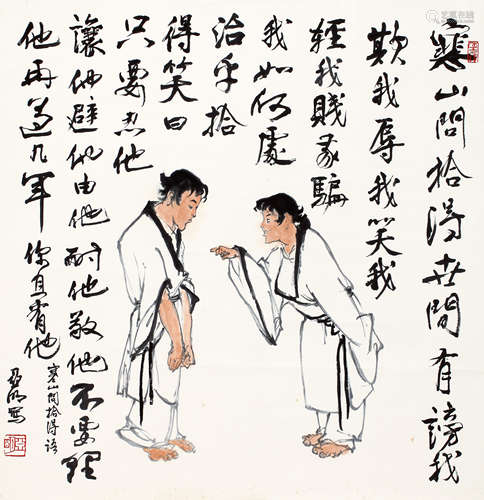 寒山問拾得世間有謗我
欺我辱我笑我
輕我賤我騙
我如何處
治乎拾
得笑曰
只要忍他
讓他避他由他耐他敬他不要理
他再過几年你且看他
寒山問拾得語
亞明寫